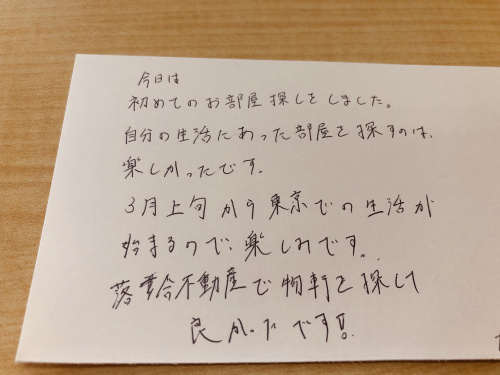 今日は
初めてのお部屋探しをしました。
自分の生活にあった部屋を探すのは、
楽しかったです。
3月上旬から東京での生活が
始まるので、楽しみです。
落合不動産で物件を探して
良かったです!!